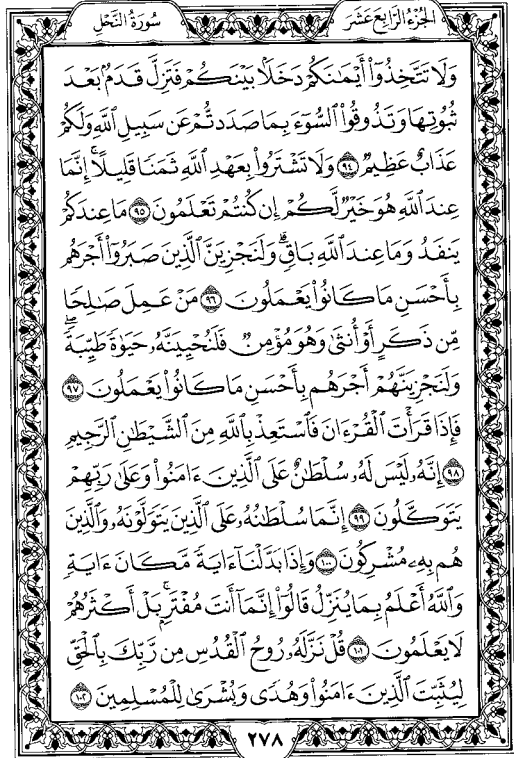 الجزء الرابع عشر
سورة النحل
وَلَا تَتَّخِذُوٓا۟ أَيْمَـٰنَكُمْ دَخَلًۢا بَيْنَكُمْ فَتَزِلَّ قَدَمٌۢ بَعْدَ
ثُبُوتِهَا وَتَذُوقُوا۟ ٱلسُّوٓءَ بِمَا صَدَدتُّمْ عَن سَبِيلِ ٱللَّهِ وَلَكُمْ
عَذَابٌ عَظِيمٌ ٩٤ وَلَا تَشْتَرُوا۟ بِعَهْدِ ٱللَّهِ ثَمَنًا قَلِيلًا ۚ إِنَّمَا
عِندَ ٱللَّهِ هُوَ خَيْرٌ لَّكُمْ إِن كُنتُمْ تَعْلَمُونَ ٩٥ مَا عِندَكُمْ
يَنفَدُ وَمَا عِندَ ٱللَّهِ بَاقٍ ۗ وَلَنَجْزِيَنَّ ٱلَّذِينَ صَبَرُوٓا۟ أَجْرَهُم
بِأَحْسَنِ مَا كَانُوا۟ يَعْمَلُونَ ٩٦ مَنْ عَمِلَ صَـٰلِحًا
مِّن ذَكَرٍ أَوْ أُنثَىٰ وَهُوَ مُؤْمِنٌ فَلَنُحْيِيَنَّهُۥ حَيَوٰةً طَيِّبَةً ۖ
وَلَنَجْزِيَنَّهُمْ أَجْرَهُم بِأَحْسَنِ مَا كَانُوا۟ يَعْمَلُونَ ٩٧
فَإِذَا قَرَأْتَ ٱلْقُرْءَانَ فَٱسْتَعِذْ بِٱللَّهِ مِنَ ٱلشَّيْطَـٰنِ ٱلرَّجِيمِ
٩٨ إِنَّهُۥ لَيْسَ لَهُۥ سُلْطَـٰنٌ عَلَى ٱلَّذِينَ ءَامَنُوا۟ وَعَلَىٰ رَبِّهِمْ
يَتَوَكَّلُونَ ٩٩ إِنَّمَا سُلْطَـٰنُهُۥ عَلَى ٱلَّذِينَ يَتَوَلَّوْنَهُۥ وَٱلَّذِينَ
هُم بِهِۦ مُشْرِكُونَ ١٠٠ وَإِذَا بَدَّلْنَآ ءَايَةً مَّكَانَ ءَايَةٍ ۙ
وَٱللَّهُ أَعْلَمُ بِمَا يُنَزِّلُ قَالُوٓا۟ إِنَّمَآ أَنتَ مُفْتَرٍۭ ۚ بَلْ أَكْثَرُهُمْ
لَا يَعْلَمُونَ ١٠١ قُلْ نَزَّلَهُۥ رُوحُ ٱلْقُدُسِ مِن رَّبِّكَ بِٱلْحَقِّ
لِيُثَبِّتَ ٱلَّذِينَ ءَامَنُوا۟ وَهُدًى وَبُشْرَىٰ لِلْمُسْلِمِينَ ١٠٢
٢٧٨